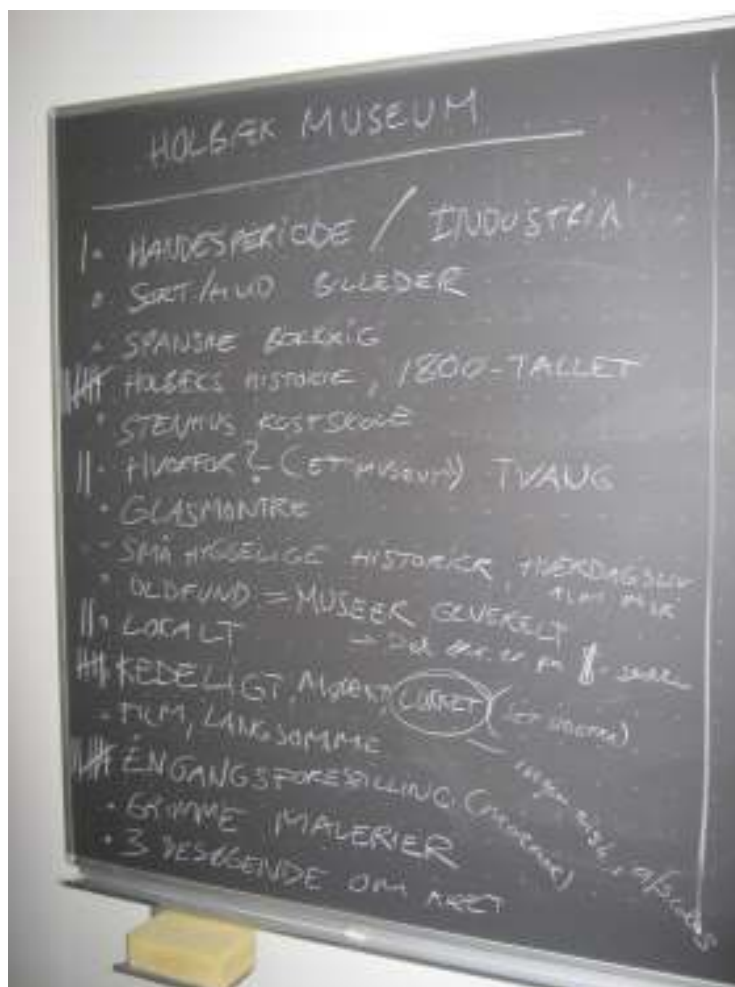 HOLBÆK MUSEUM
HANDESPERIODE / INDUSTRI
SORT/HVID BILLEDER
SPANSKE
HOLBÆKS HISTORIE, 1800-TALLET
STENHUS KOSTSKOLE
HVORFOR? (ET MUSEUM) TVANG
GLASMONTRE
SMÅ HYGGELIGE HISTORIER, HVERDAGSLIV
OLDFUND = MUSEER GENERELT
LOKALT
KEDELIGT, MØRKT, LUKKET
FILM, LANGSOMME
ÉNGANGSFORESTILLING
GRIMME MALERIER
3 BESØGENDE OM ÅRET